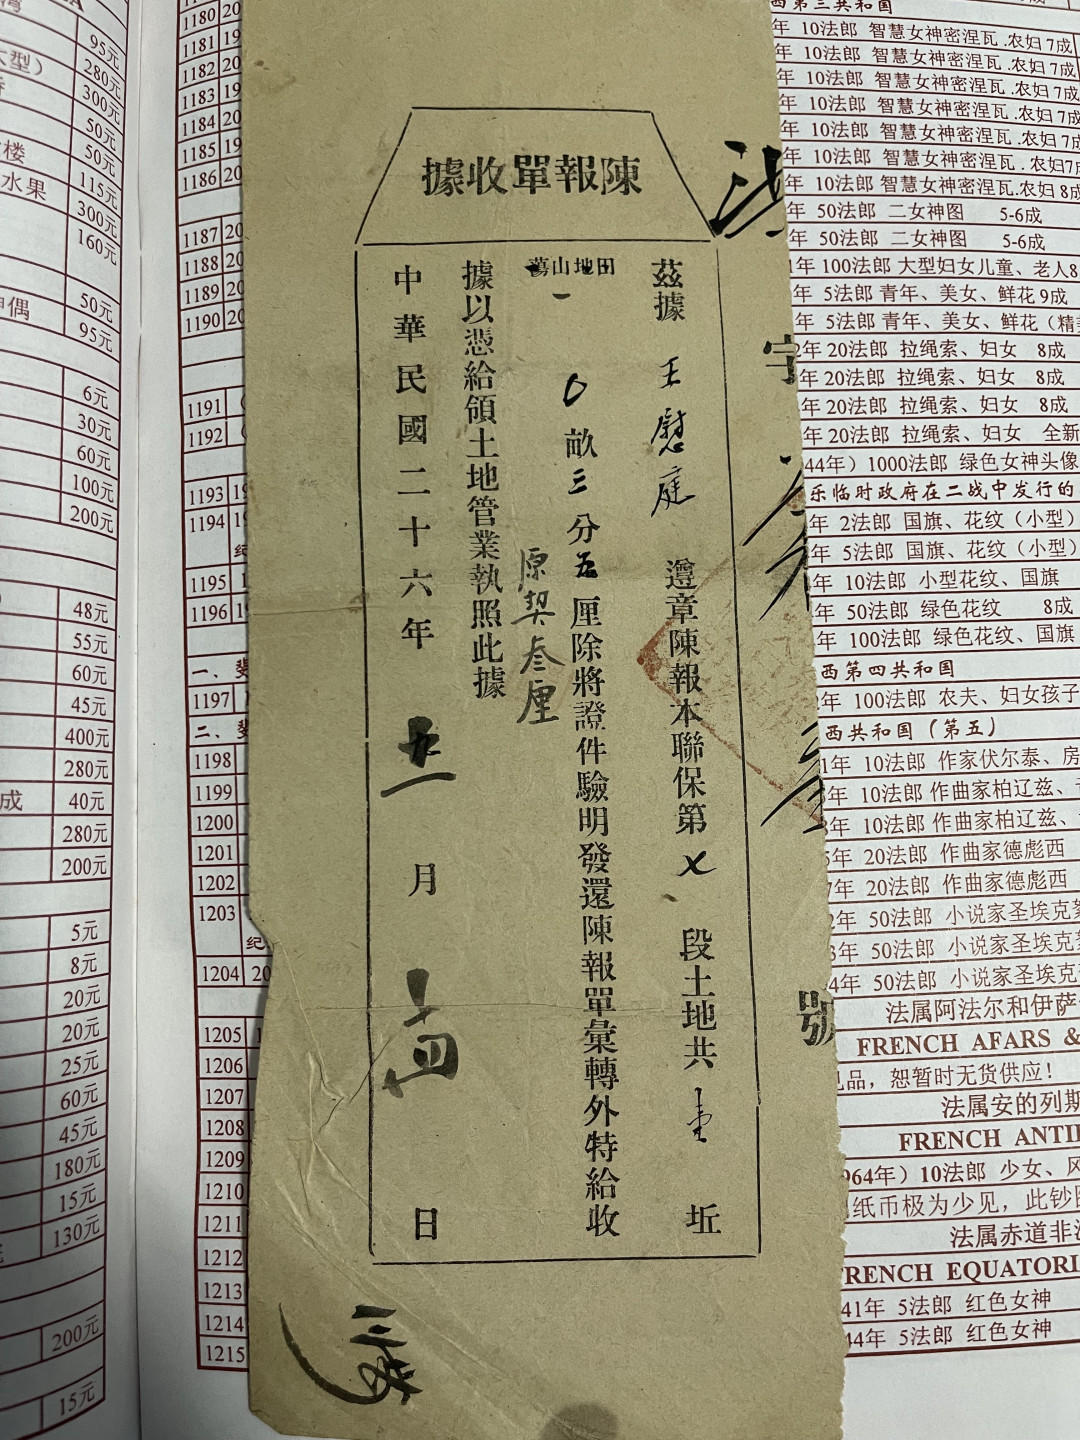 陳報單收據
茲據 王慰庭 遵章陳報本聯保第 七 段土地共 壹 坵
田地山蕩
一 0畝三分五厘除將證件驗明發還陳報單彙轉外特給收
原契叁厘
據以憑給領土地管業執照此據
中華民國二十六年 五 月 日
字
號
95元
280元
300元
50元
50元
115元
水果
300元
160元
50元
95元
6元
30元
60元
100元
200元
48元
55元
60元
45元
400元
280元
成 40元
280元
200元
5元
8元
20元
20元
25元
60元
45元
180元
15元
130元
200元
15元
1180 20
1181 19
1182 20
1183 19
1184 20
1185 19
1186 20
1187 20
1188 20
1189 20
1190 20
1191
1192
1193 19
1194 19
1195 1
1196 19
1197
1198
1199
1200
1201
1202
1203
纪
1204 20
1205 1
1206
1207
1208
1209
1210
1211
1212
1213
1214
1215
西第三共和国
年 10法郎 智慧女神密涅瓦.农妇 7成
年 10法郎 智慧女神密涅瓦.农妇 7成
年 10法郎 智慧女神密涅瓦.农妇 7成
年 10法郎 智慧女神密涅瓦.农妇 7成
年 10法郎 智慧女神密涅瓦.农妇 7成
年 10法郎 智慧女神密涅瓦.农妇7成
年 10法郎 智慧女神密涅瓦.农妇 8成
年 50法郎 二女神图 5-6成
年 50法郎 二女神图 5-6成
1年 100法郎 大型妇女儿童、老人8
年 5法郎 青年、美女、鲜花 9成
年 5法郎 青年、美女、鲜花（精美
2年 20法郎 拉绳索、妇女 8成
年 20法郎 拉绳索、妇女 8成
年 20法郎 拉绳索、妇女 8成
年 20法郎 拉绳索、妇女 全新
44年）1000法郎 绿色女神头像
乐临时政府在二战中发行的
年 2法郎 国旗、花纹（小型）
年 5法郎 国旗、花纹（小型）
年 10法郎 小型花纹、国旗
年 50法郎 绿色花纹 8成
年 100法郎 绿色花纹、国旗
西第四共和国
年 100法郎 农夫、妇女孩子
西共和国（第五）
1年 10法郎 作家伏尔泰、房
年 10法郎 作曲家柏辽兹、
年 10法郎 作曲家柏辽兹、
5年 20法郎 作曲家德彪西
7年 20法郎 作曲家德彪西
2年 50法郎 小说家圣埃克絮
3年 50法郎 小说家圣埃克絮
4年 50法郎 小说家圣埃克
法属阿法尔和伊萨
FRENCH AFARS &
品，恕暂时无货供应！
法属安的列斯
FRENCH ANTI
964年）10法郎 少女、风
纸币极为少见，此钞
法属赤道非
FRENCH EQUATORI
41年 5法郎 红色女神
44年 5法郎 红色女神